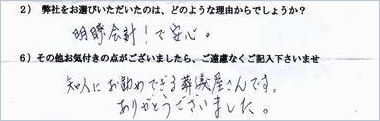 2） 弊社をお選びいただいたのは、どのような理由からでしょうか？
明瞭会計！で安心。
6）その他お気付きの点がございましたら、ご遠慮なくご記入下さいませ
知人にお勧めできる葬儀屋さんです。
ありがとうございました。